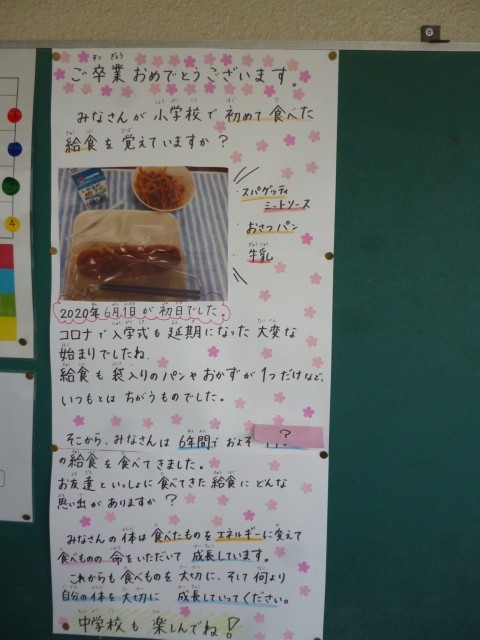 ご卒業おめでとうございます。
みなさんが小学校で初めて食べた
給食を覚えていますか？
・スパゲッティ
ミートソース
・おさつパン
・牛乳
2020年6月1日が初日でした。
コロナで入学式も延期になった大変な
始まりでしたね
給食も袋入りのパンやおかずが1つだけなど、
いつもとはちがうものでした。
そこから、みなさんは6年間でおよそ ？
の給食を食べてきました。
お友達といっしょに食べてきた給食にどんな
思い出がありますか？
みなさんの体は食べたものをエネルギーに変えて
食べものの命をいただいて成長しています。
これからも食べものを大切に、そして何より
自分の体を大切に 成長していってください。
中学校も楽しんでね！
4